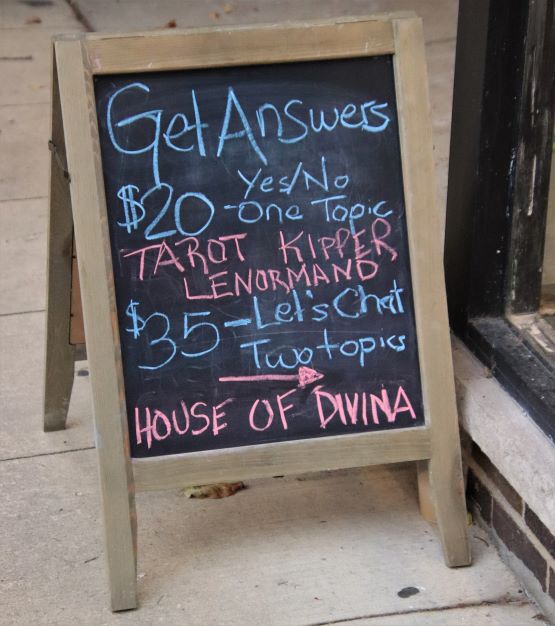 Get Answers
Yes/No
$20 - One Topic
TAROT KIPPER
LENORMAND
$35 - Let's Chat
Two topics
HOUSE OF DIVINA